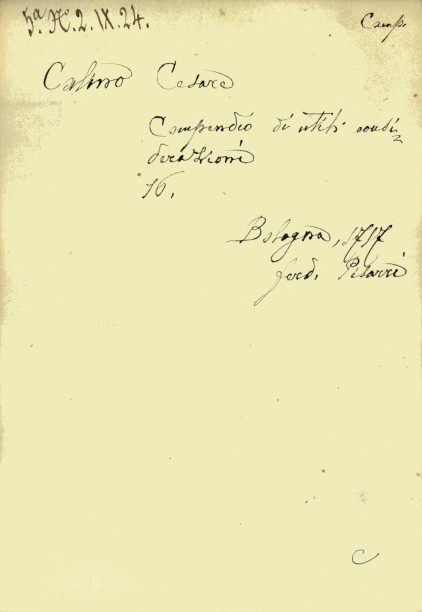 5ª. Nº. 2. IX. 24.
Comp.
Calino Cesare
Compendio di utili consi-
derazioni
16.
Bologna, 1717
ferd. Pisarri
C